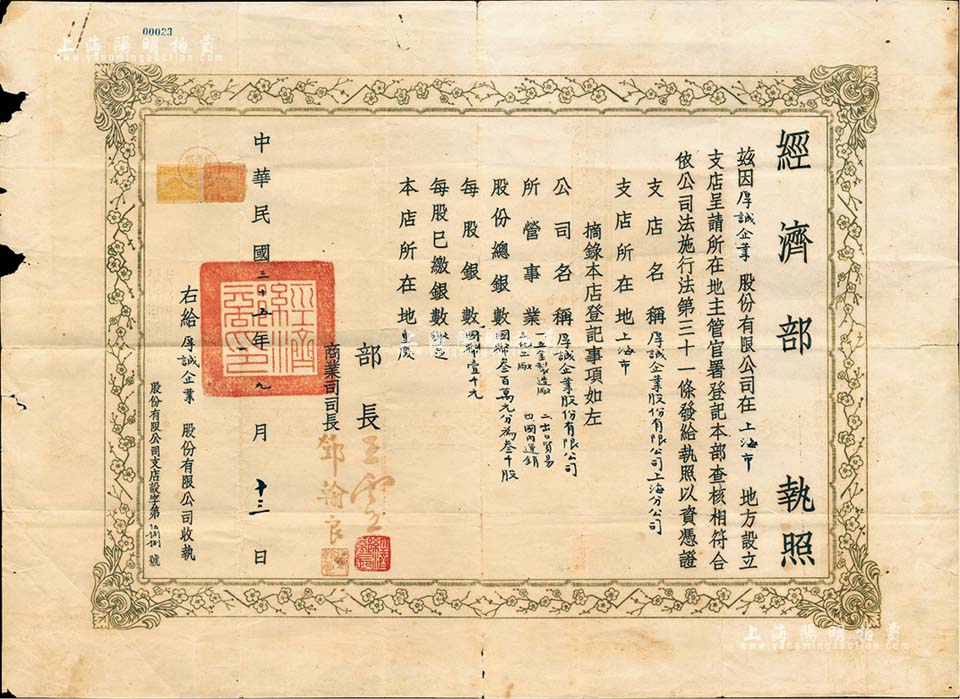 00023
經濟部執照
茲因厚誠企業股份有限公司在上海市地方設立
支店呈請所在地主管官署登記本部查核相符合
依公司法施行法第三十一條發給執照以資憑證
支店名稱厚誠企業股份有限公司上海分公司
支店所在地上海市
摘錄本店登記事項如左
公司名稱厚誠企業股份有限公司
所營事業 二出口貿易 四國內運銷
股份總銀數國幣叁百萬元分為叁千股
每股銀數國幣壹千元
每股已繳銀數
本店所在地重慶
部長王雲五
商業司司長鄧翰良
中華民國三十五年九月十三日
經濟部印
右給厚誠企業股份有限公司收執
股份有限公司支店設字第號
上海陽明拍賣
www.yangmingauction.com
上海陽明拍賣
www.yangmingauction.com
上海陽明拍賣
www.yangmingauction.com